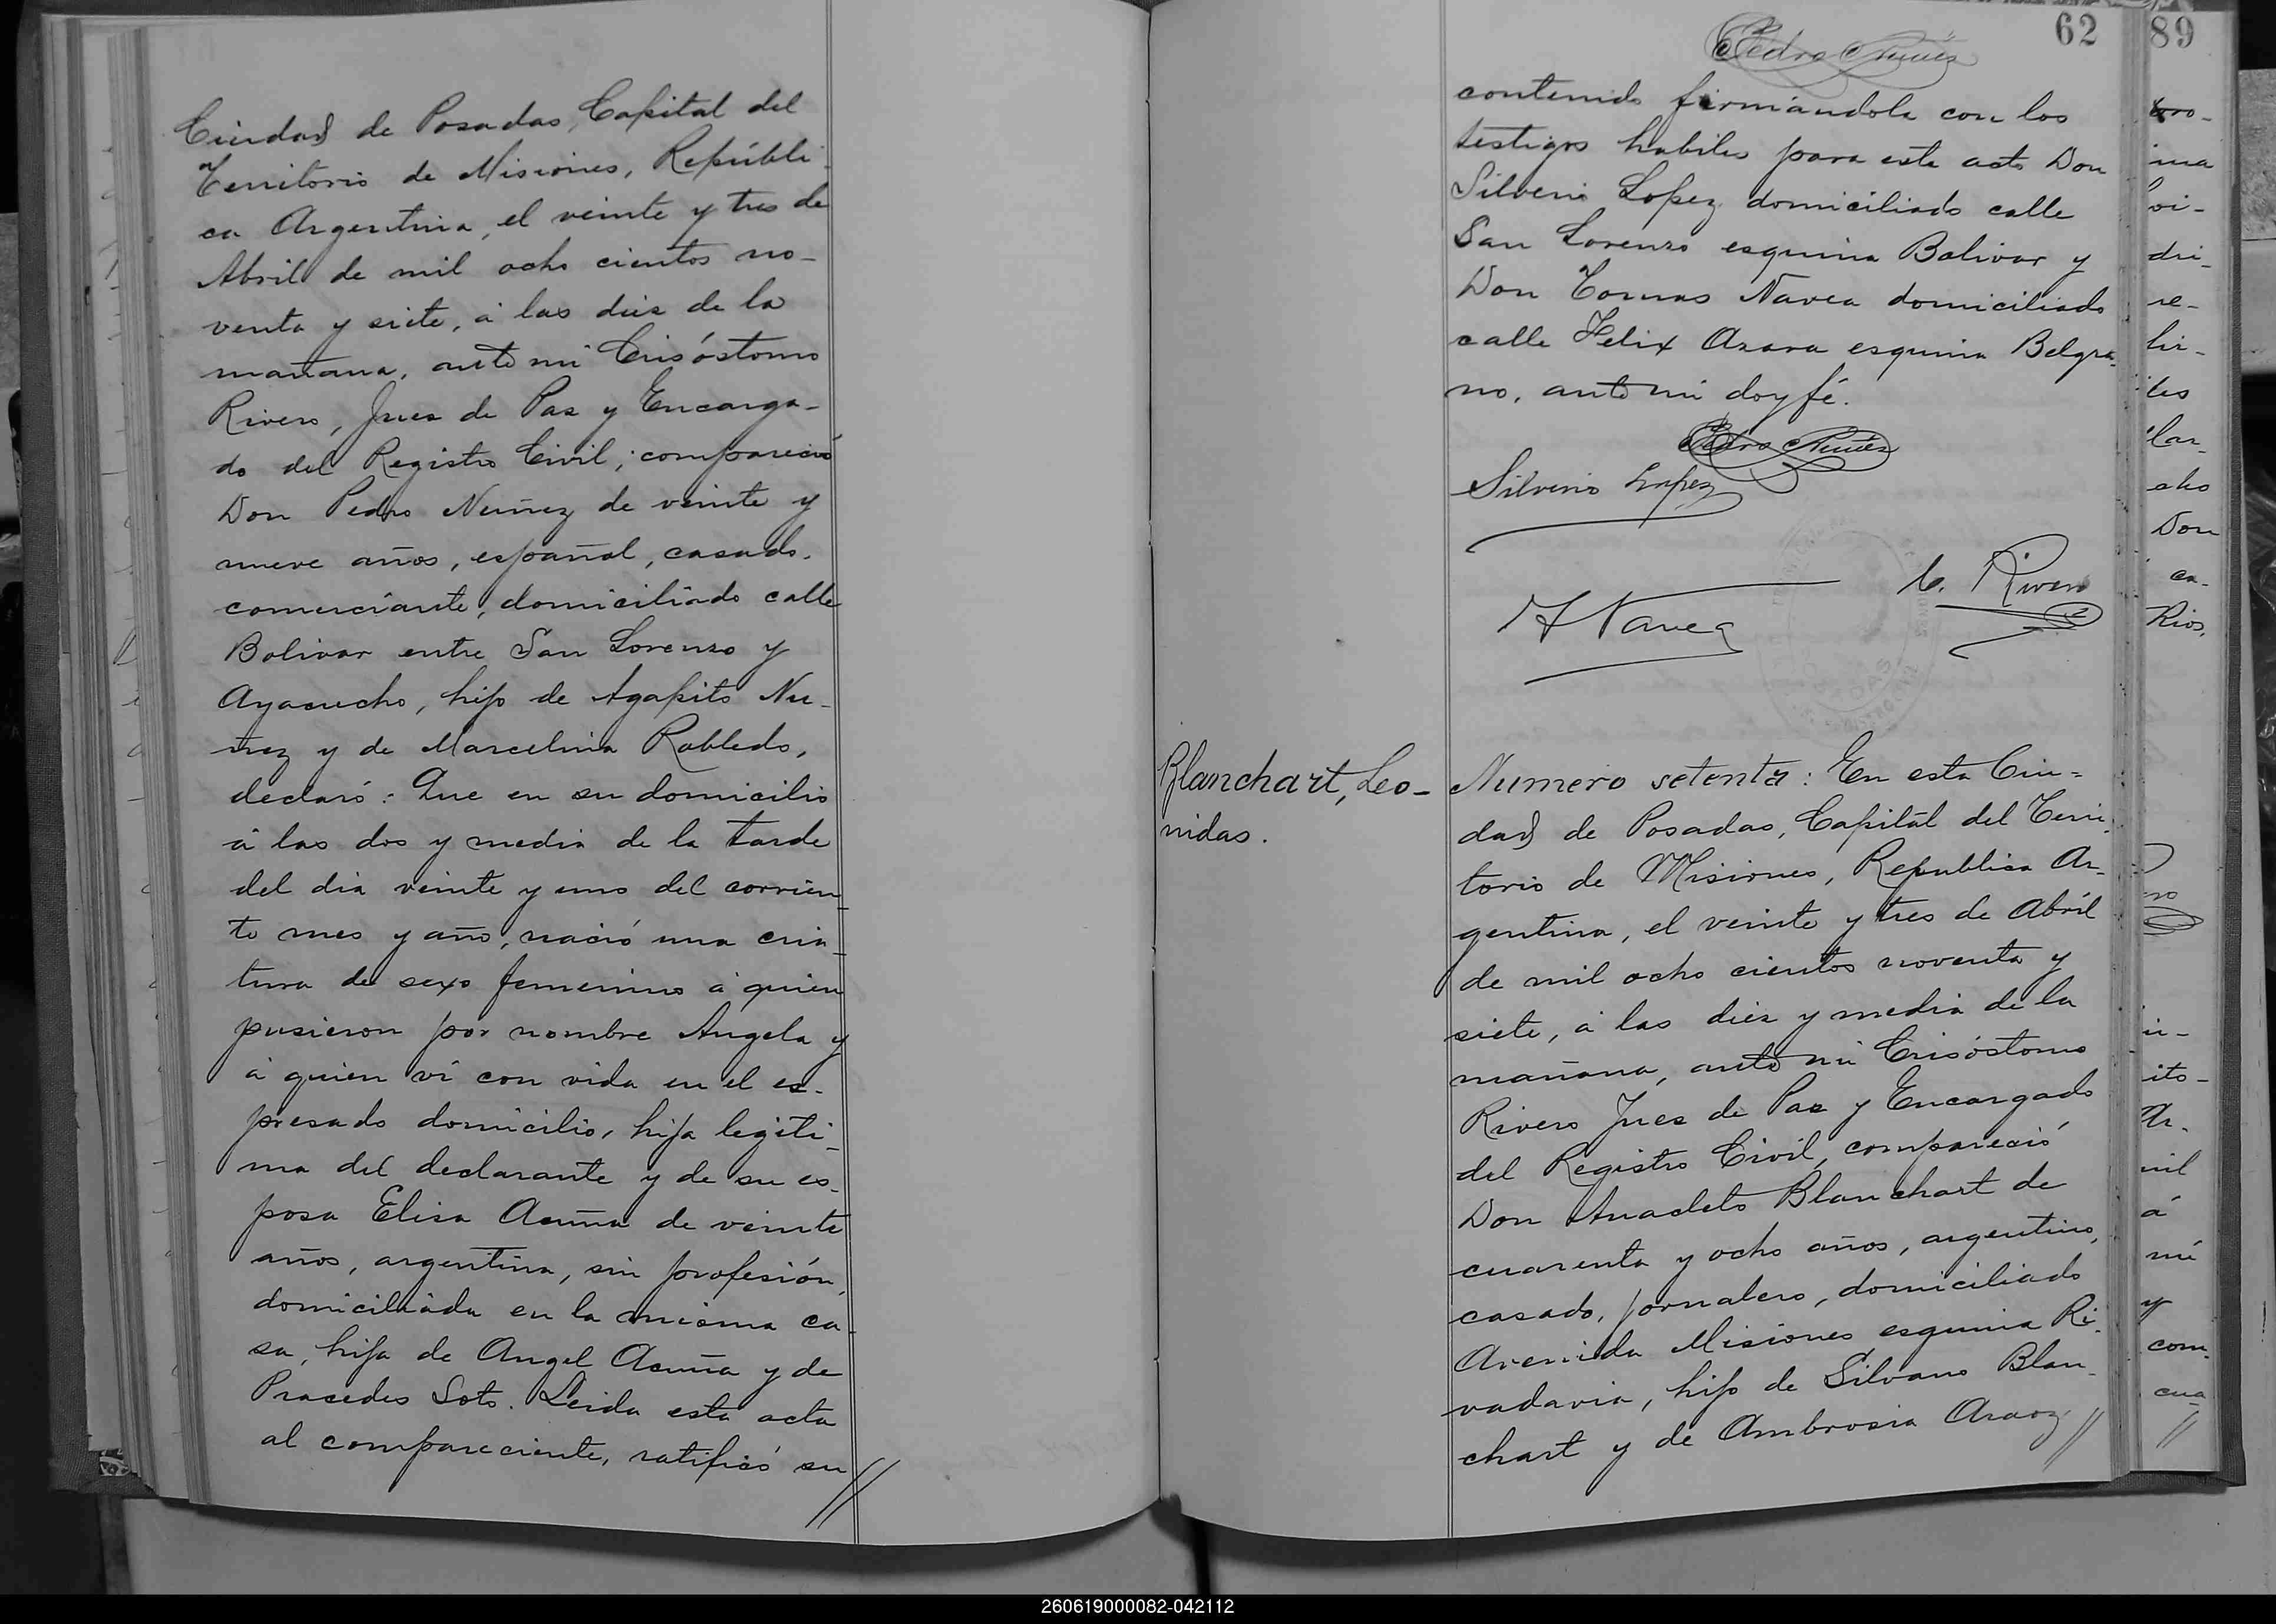 Ciudad de Posadas, Capital del
Territorio de Misiones, Repúbli-
ca Argentina, el veinte y tres de
Abril de mil ocho cientos no-
venta y siete, á las diez de la
mañana, ante mi Crisóstomo
Rivero, Juez de Paz y Encarga-
do del Registro Civil; compareció
Don Pedro Nuñez de veinte y
nueve años, español, casado,
comerciante, domiciliado calle
Bolivar entre San Lorenzo y
Ayacucho, hijo de Agapito Nu-
ñez y de Marcelina Robledo,
declaró: Que en su domicilio
á las dos y media de la tarde
del dia veinte y uno del corrien-
te mes y año, nació una cria-
tura de sexo femenino á quien
pusieron por nombre Angela y
á quien ví con vida en el es-
presado domicilio, hija legíti-
ma del declarante y de su es-
posa Elisa Acuña de veinte
años, argentina, sin profesión,
domiciliada en la misma ca-
sa, hija de Angel Acuña y de
Pracedes Soto. Leida esta acta
al compareciente, ratificó su //
62
Pedro Nuñez
contenido firmándola con los
testigos habiles para este acto Don
Silverio Lopez domiciliado calle
San Lorenzo esquina Bolivar y
Don Tomas Navea domiciliado
calle Felix Azara esquina Belgra-
no, ante mi doy fé.
Pedro Nuñez
Silverio Lopez
C. Rivero
T Navea
Blanchart, Leo-
nidas.
Numero setenta: En esta Ciu-
dad de Posadas, Capital del Terri-
torio de Misiones, Republica Ar-
gentina, el veinte y tres de Abril
de mil ocho cientos noventa y
siete, á las diez y media de la
mañana, ante mi Crisóstomo
Rivero Juez de Paz y Encargado
del Registro Civil, compareció
Don Anacleto Blanchart de
cuarenta y ocho años, argentino,
casado, jornalero, domiciliado
Avenida Misiones esquina Ri-
vadavia, hijo de Silvano Blan-
chart y de Ambrosia Araoz //
89
ma
loi-
dri-
re-
lir-
tes
lar-
cho
Don
ca-
Rios,
ito-
Ar-
mil
á
mi
y
com-
cua-
//
260619000082-042112